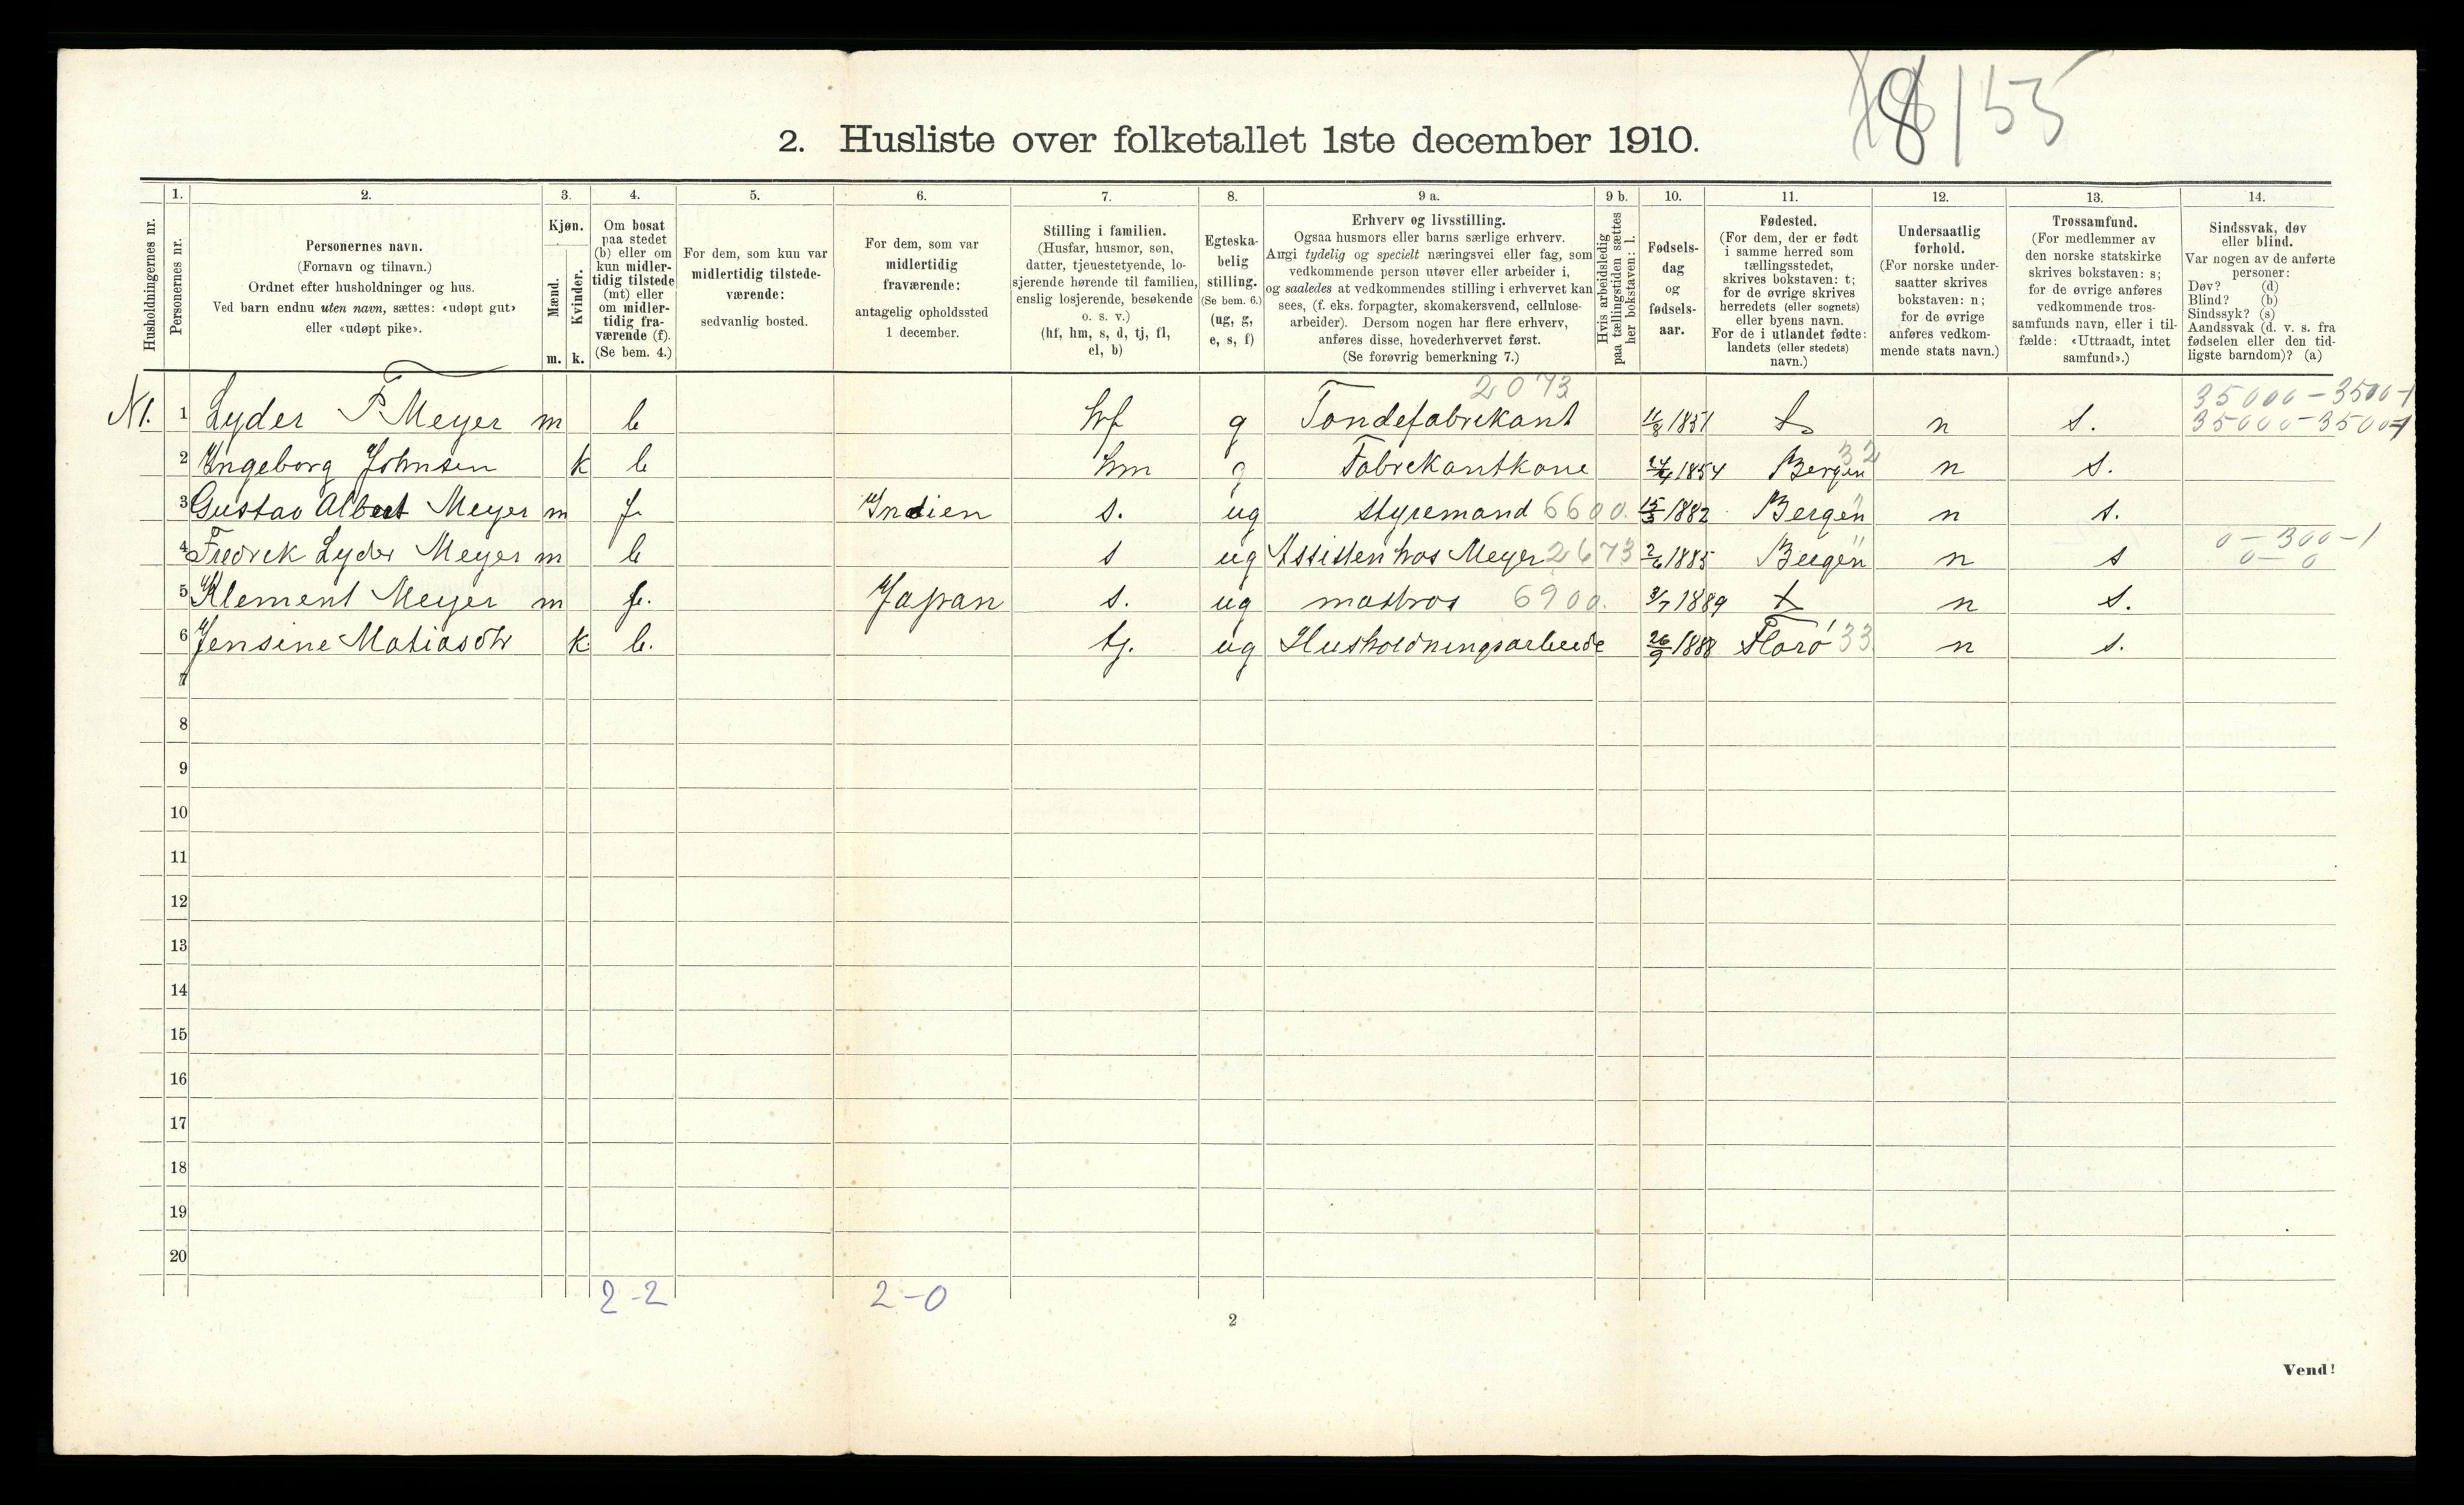 8/55
2. Husliste over folketallet 1ste december 1910.
Husholdningernes nr.
1. Personernes nr.
2. Personernes navn. (Fornavn og tilnavn.) Ordnet efter husholdninger og hus. Ved barn endnu uten navn, sættes: «udøpt gut» eller «udøpt pike».
3. Kjøn. Mænd. m. Kvinder. k.
4. Om bosat paa stedet (b) eller om kun midlertidig tilstede (mt) eller om midlertidig fraværende (f). (Se bem. 4.)
5. For dem, som kun var midlertidig tilstedeværende: sedvanlig bosted.
6. For dem, som var midlertidig fraværende: antagelig opholdssted 1 december.
7. Stilling i familien. (Husfar, husmor, søn, datter, tjenestetyende, losjerende hørende til familien, enslig losjerende, besøkende o. s. v.) (hf, hm, s, d, tj, fl, el, b)
8. Egteskabelig stilling. (Se bem. 6.) (ug, g, e, s, f)
9 a. Erhverv og livsstilling. Ogsaa husmors eller barns særlige erhverv. Angi tydelig og specielt næringsvei eller fag, som vedkommende person utøver eller arbeider i, og saaledes at vedkommendes stilling i erhvervet kan sees, (f. eks. forpagter, skomakersvend, cellulosearbeider). Dersom nogen har flere erhverv, anføres disse, hovederhvervet først. (Se forøvrig bemerkning 7.)
9 b. Hvis arbeidsledig paa tællingstiden sættes her bokstaven: l.
10. Fødselsdag og fødselsaar.
11. Fødested. (For dem, der er født i samme herred som tællingsstedet, skrives bokstaven: t; for de øvrige skrives herredets (eller sognets) eller byens navn. For de i utlandet fødte: landets (eller stedets) navn.)
12. Undersaatlig forhold. (For norske undersaatter skrives bokstaven: n; for de øvrige anføres vedkommende stats navn.)
13. Trossamfund. (For medlemmer av den norske statskirke skrives bokstaven: s; for de øvrige anføres vedkommende trossamfunds navn, eller i tilfælde: «Uttraadt, intet samfund».)
14. Sindssvak, døv eller blind. Var nogen av de anførte personer: Døv? (d) Blind? (b) Sindssyk? (s) Aandssvak (d. v. s. fra fødselen eller den tidligste barndom)? (a)
N1. 1 Lyder T Meyer m b hf g Tøndefabrikant 2073 11/8 1851 t n s. 35000-3500-1 35000-3500-1
2 Ingeborg Johnsen k b hm g Fabrikantkone 1854 Bergen 32 n s.
3 Gustav Albert Meyer m f. Indien s. ug styremand 6600. 15/3 1882 Bergen " n s.
4 Fredrik Lyder Meyer m b s ug Assisten hos Meyer 2673 2/6 1885 Bergen " n s 0-300-1 0-0
5 Klement Meyer m f. Japan s. ug matros 6900. 3/7 1889 t n s.
6 Jensine Matiasdtr k b. tj. ug Husholdningsarbeide 26/9 1888 Florø 33 n s.
7
8
9
10
11
12
13
14
15
16
17
18
19
20
2-2 2-0
2
Vend!